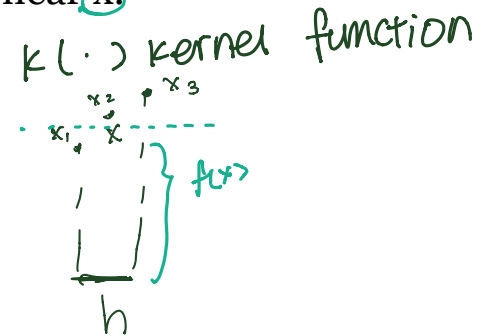 near x.
K(·) kernel function
x2 x3
x1 x
f(x)
h